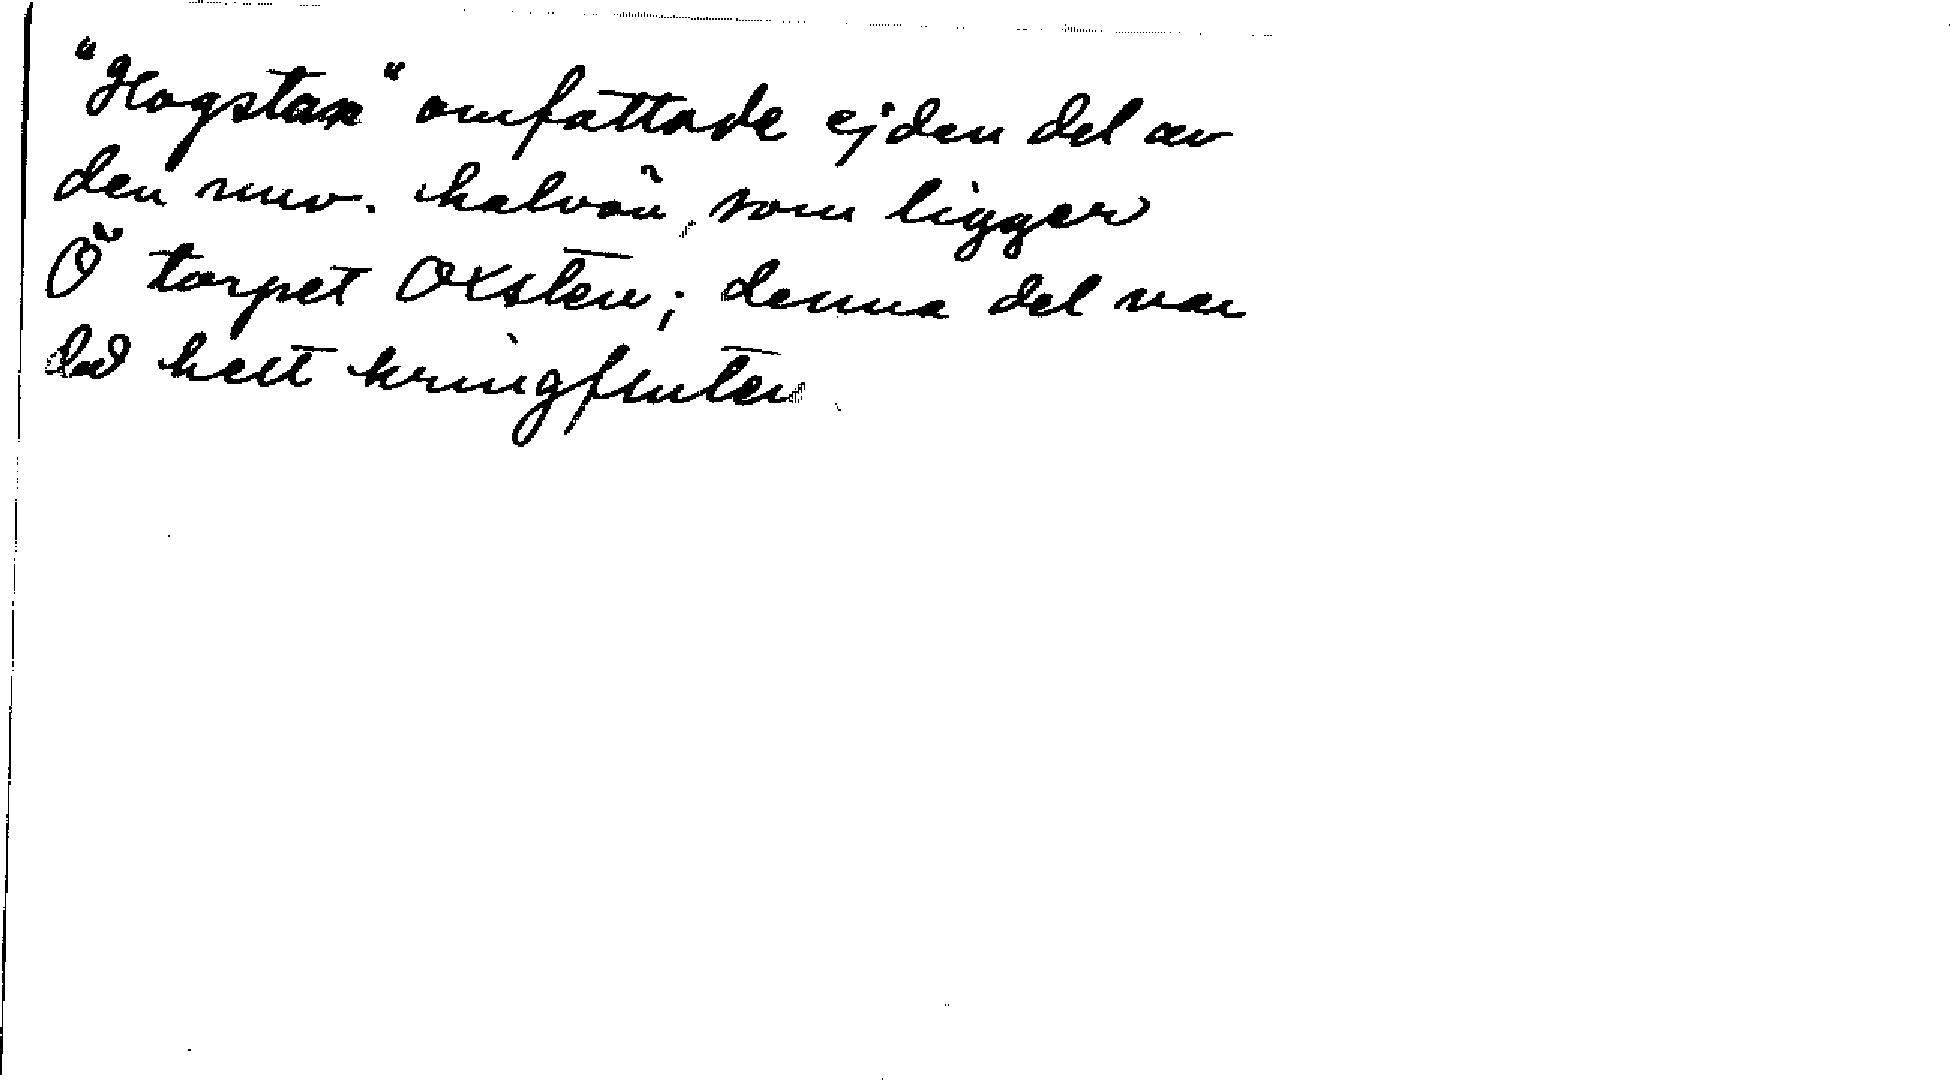 "Hagstax" omfattade ej den del av
den nuv. halvön, som ligger
Ö torpet Oxsten; denna del var
då helt kringfluten